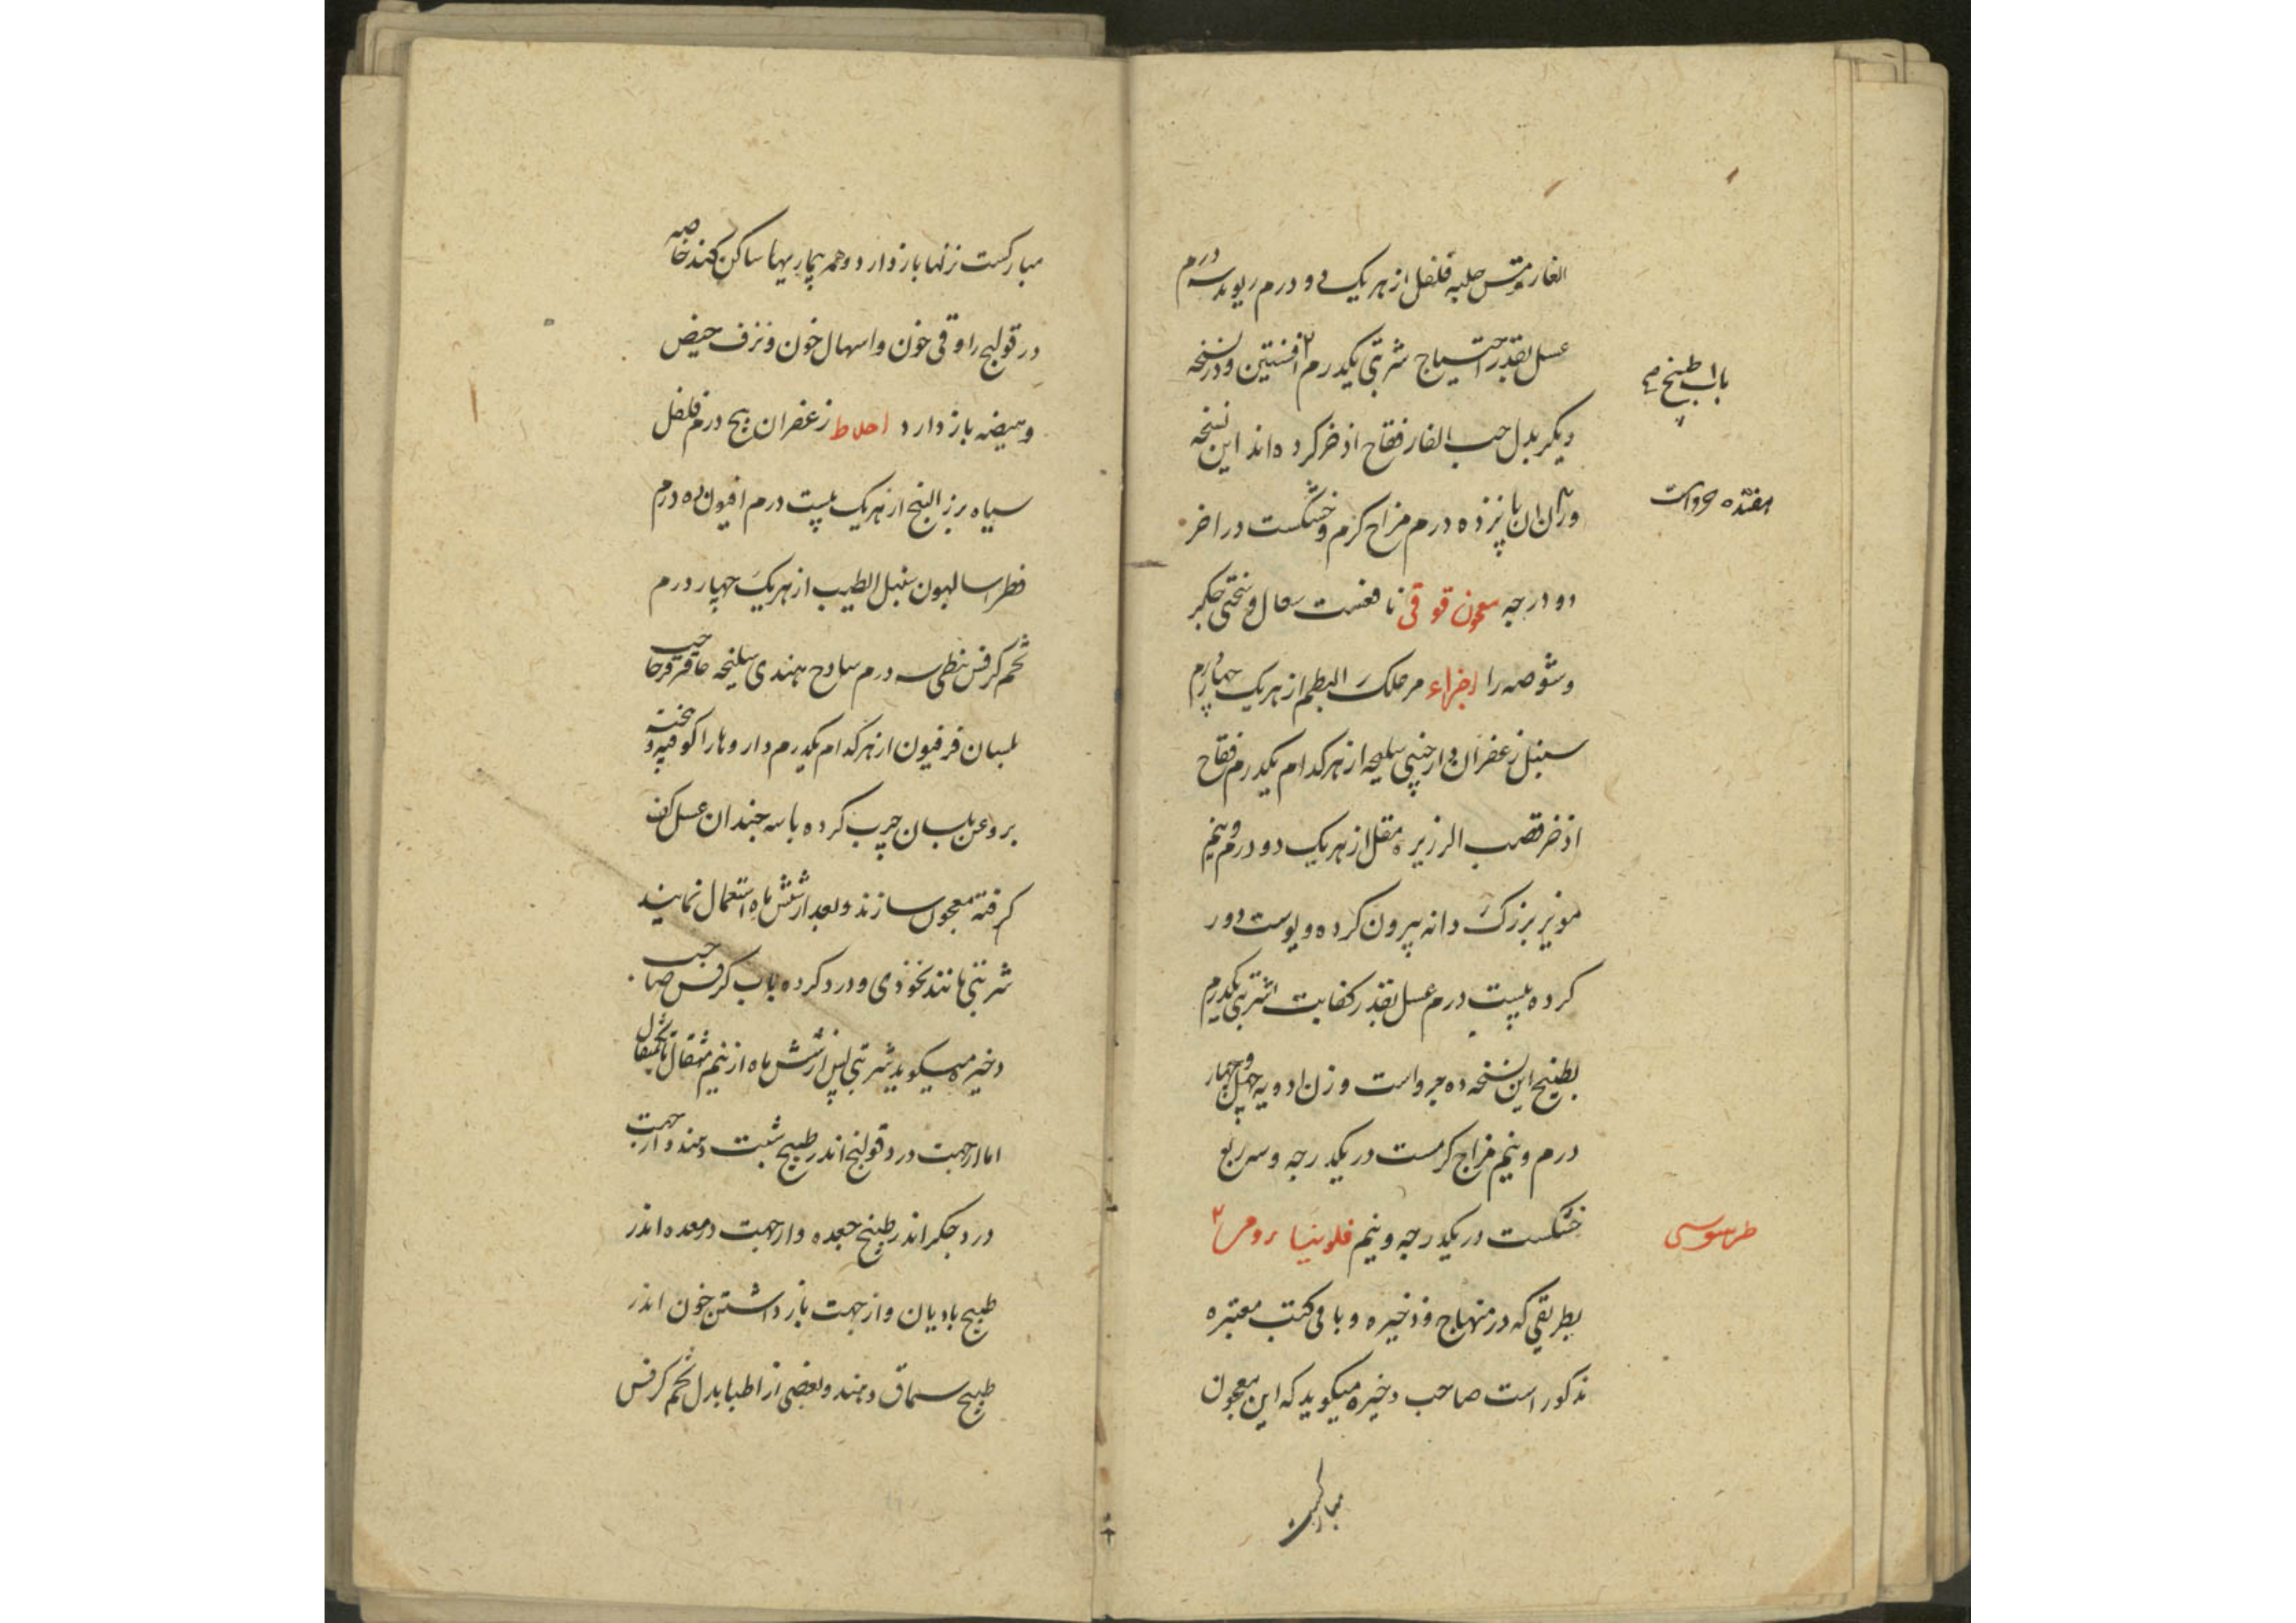 الغار مرمتس حلبه فلفل از هر یک دو درم ریوند سه درم
عسل بقدر احتیاج شربتی یکدرم با افسنتین و در نسخه
دیکر بدل حب الغار فقاح اذخر کرده اند این نسخه
وزن ان پانزده درم مزاج کرم و خشکست در اخر
دو درجه معجون قوقی نافعست سعال و سختی جکر
و شوصه را اجزاء مر علک البطم از هر یک چهار درم
سنبل زعفران دارچینی سلیخه از هر کدام یکدرم فقاح
اذخر قصب الرزیره مقل از هر یک دو درم و نیم
مویز بزرک دانه بیرون کرده و پوست دور
کرده بیست درم عسل بقدر کفایت شربتی یکدرم
بطبیخ این نسخه ده جزو است وزن ادویه چهل و چهار
درم و نیم مزاج کرمست در یکدرجه و سه ربع
خشکست در یکدرجه و نیم فلونیا رومی
بطریقی که در منهاج و ذخیره و باقی کتب معتبره
مذکور است صاحب ذخیره میکوید که این معجون
مبارکست
باب طبیخ
هفده جزو است
طرسوسی
مبارکست نزفها باز دارد و همه بیماریها ساکن کند خاصه
درد قولنج را و قی خون و اسهال خون و نزف حیض
و هیضه باز دارد اخلاط زعفران پنج درم فلفل
سیاه بزر البنج از هر یک بیست درم افیون ده درم
فطراسالیون سنبل الطیب از هر یک چهار درم
تخم کرفس نبطی سه درم ساذج هندی سلیخه عاقرقرحا حب
بلسان فرفیون از هر کدام یکدرم داروها را کوفته و بیخته
بروغن بلسان چرب کرده با سه چندان عسل کف
کرفته معجون سازند و بعد از شش ماه استعمال نمایند
شربتی مانند نخودی و درد کرده باب کرفس صاحب
ذخیره میکوید شربتی پس از شش ماه از نیم مثقال تا یکمثقال
اما از جهت درد قولنج اندر طبیخ شبت دهند و از جهت
درد جکر اندر طبیخ جعده و از جهت درد معده اندر
طبیخ بادیان و از جهت باز داشتن خون اندر
طبیخ سماق دهند و بعضی از اطبا بدل تخم کرفس